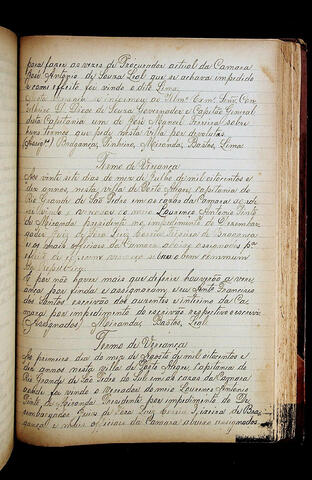 para fazer as vezes de Procurador actual da Camara
José Antonio de Souza Leal que se achava impedido
e com effeito foi vindo o dito Lima.
Nesta Vereança se informou ao Illmo. Exmo. Snr. Con
selheiro D. Diogo de Souza Governador e Capitão General
desta Capitania um de José Manoel Ferreira sobre
huns terrenos que pede nesta villa por devolutos.
(Assigdos.) Bragança, Pinheiro, Miranda, Bastos, Lima.
Termo de Vereança
Aos vinte sete dias do mez de Julho de mil oitocentos e
dez annos, nesta villa de Porto Alegre, capitania do
Rio Grande de São Pedro em as casas da Camara
vindo o vereador Lourenço Antonio Pinto
de Miranda presidente no impedimento do Dezembar
gador Juiz de Fora Luiz Corrêa Teixeira de Bragança
e os mais officiaes da Camara abaixo assignados pa
bem commum
da republica.
E por não haver mais que deferir houverão a vere
ança por finda e assignaram, e eu Pinto Francisco
dos Santos escrivão dos auzentes e interino da Ca
mara por impedimento do escrivão respectivo escrevi.
(Assignados) Miranda, Bastos, Leal.
Termo de Vereança
Ao primeiro dia do mez de Agosto de mil oitocentos e
dez annos nesta villa de Porto Alegre, capitania do
Rio Grande de São Pedro do Sul em as casas da Camara
onde foi vindo o vereador Lourenço Antonio
Pinto de Miranda Presidente por impedimento do De
zembargador Juiz de Fora Luiz Corrêa Teixeira de Bra
gança e mais officiaes da Camara abaixo assignados